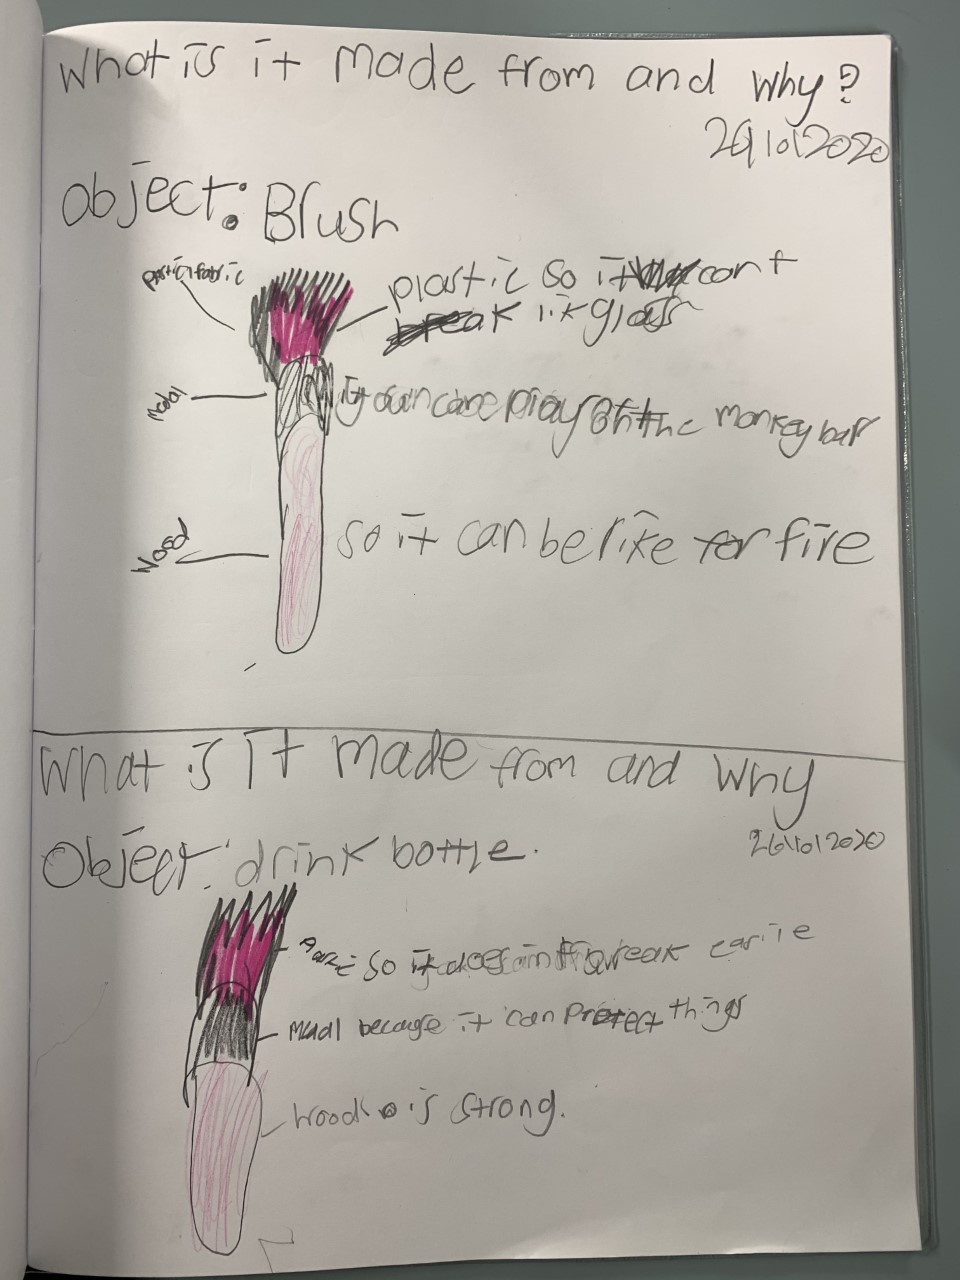 What is it made from and why?
26/10/2020
Object: Brush
plastic fabric
plastic so it can't
break lik glass
Medal
it can play on the monkey bar
Wood
so it can be like for fire
What is it made from and why
26/10/2020
Object: drink bottle.
so it doesint break earile
Medal because it can Protect things
Wood is strong.